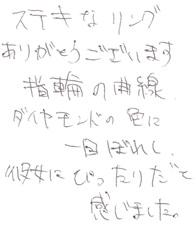 ステキなリング
ありがとうございます
指輪の曲線
ダイヤモンドの色に
一目ぼれし、
彼女にぴったりだと
感じました。